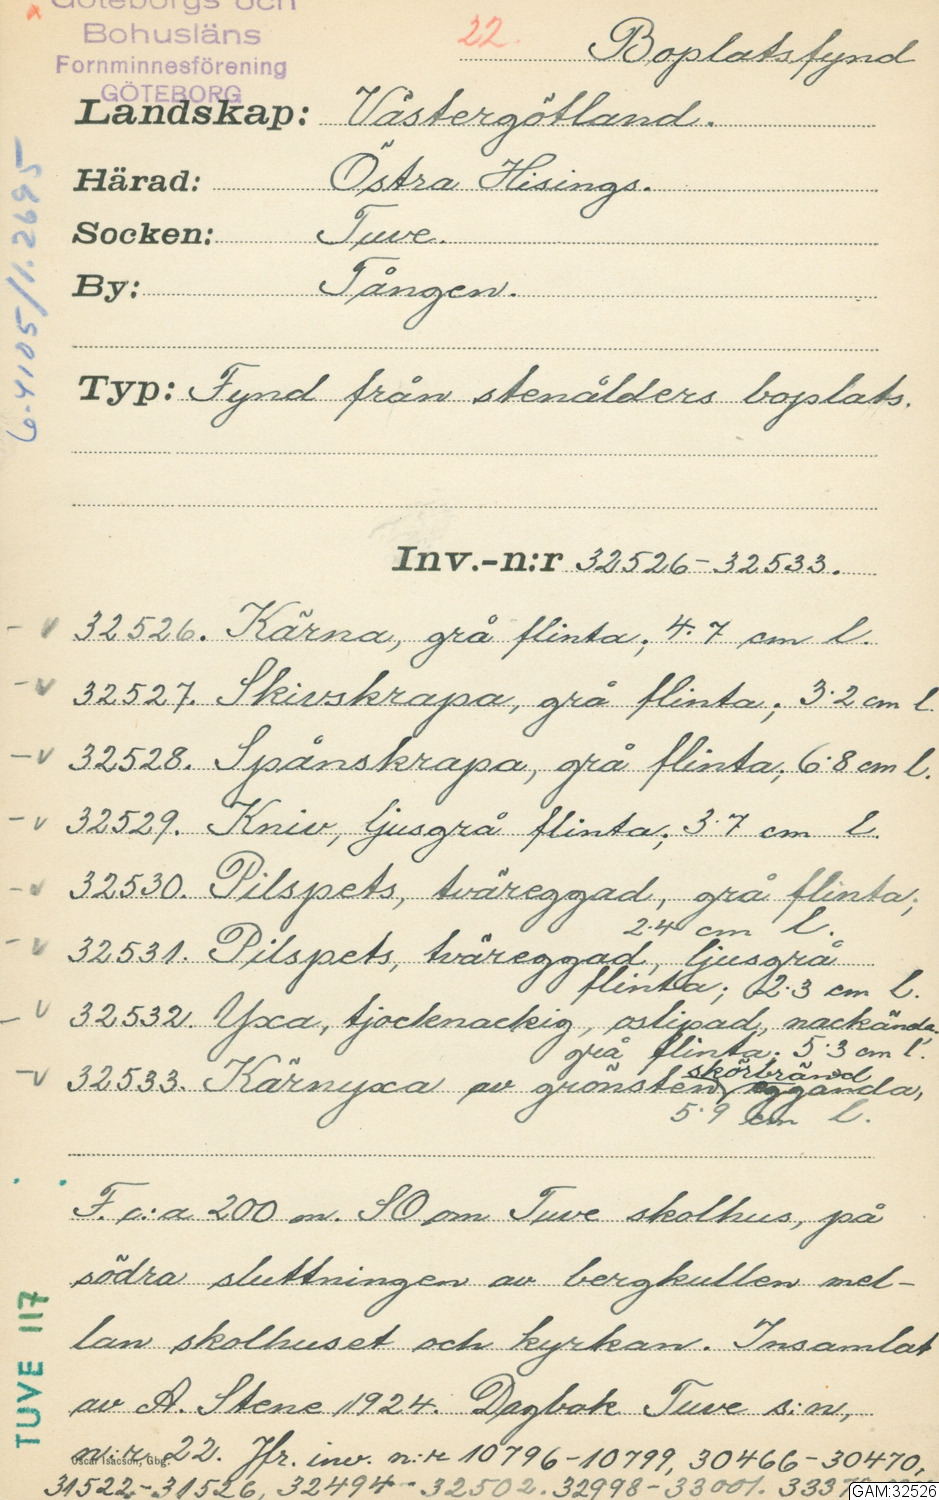 Göteborgs och
Bohusläns
Fornminnesförening
GÖTEBORG
22.
Boplatsfynd
Landskap: Västergötland.
Härad: Östra Hisings.
Socken: Tuve.
By: Tången.
Typ: Fynd från stenålders boplats.
Inv.-n:r 32526-32533.
32526. Kärna, grå flinta; 4.7 cm l.
32527. Skivskrapa, grå flinta; 3.2 cm l.
32528. Spånskrapa, grå flinta; 6.8 cm l.
32529. Kniv, ljusgrå flinta; 3.7 cm l.
32530. Pilspets, tväreggad, grå flinta;
2.4 cm l.
32531. Pilspets, tväreggad, ljusgrå
flinta; 2.3 cm l.
32532. Yxa, tjocknackig, oslipad, nackända,
grå flinta; 5.3 cm l.
skörbränd
32533. Kärnyxa av grönsten, eggända,
5.9 cm l.
F. c:a 200 m. SO om Tuve skolhus, på
södra sluttningen av bergkullen mel-
lan skolhuset och kyrkan. Insamlat
av A. Stene 1924. Dagbok Tuve s:n,
n:r 22. Jfr. inv. n:r 10796-10799, 30466-30470,
Oscar Isacson, Gbg.
31522-31526, 32494-32502. 32998-33001.
6-4105/1.2695
TUVE 117
GAM:32526